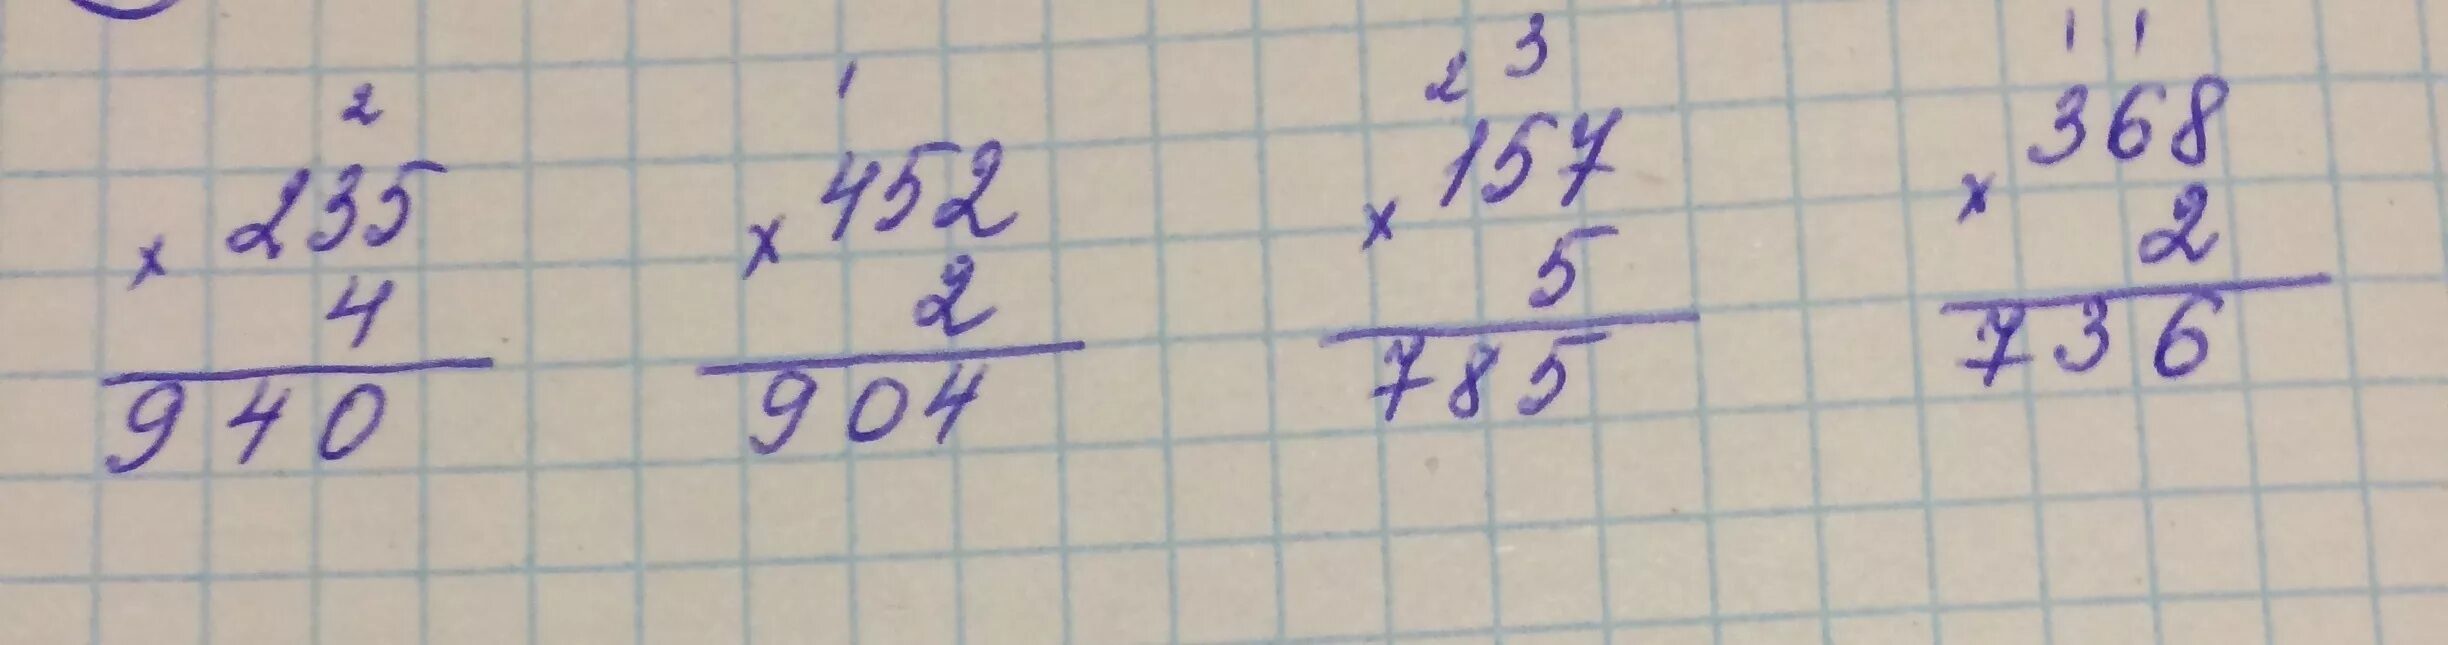 2
235
× 4
940
1
452
× 2
904
2 3
157
× 5
785
1 1
368
× 2
736